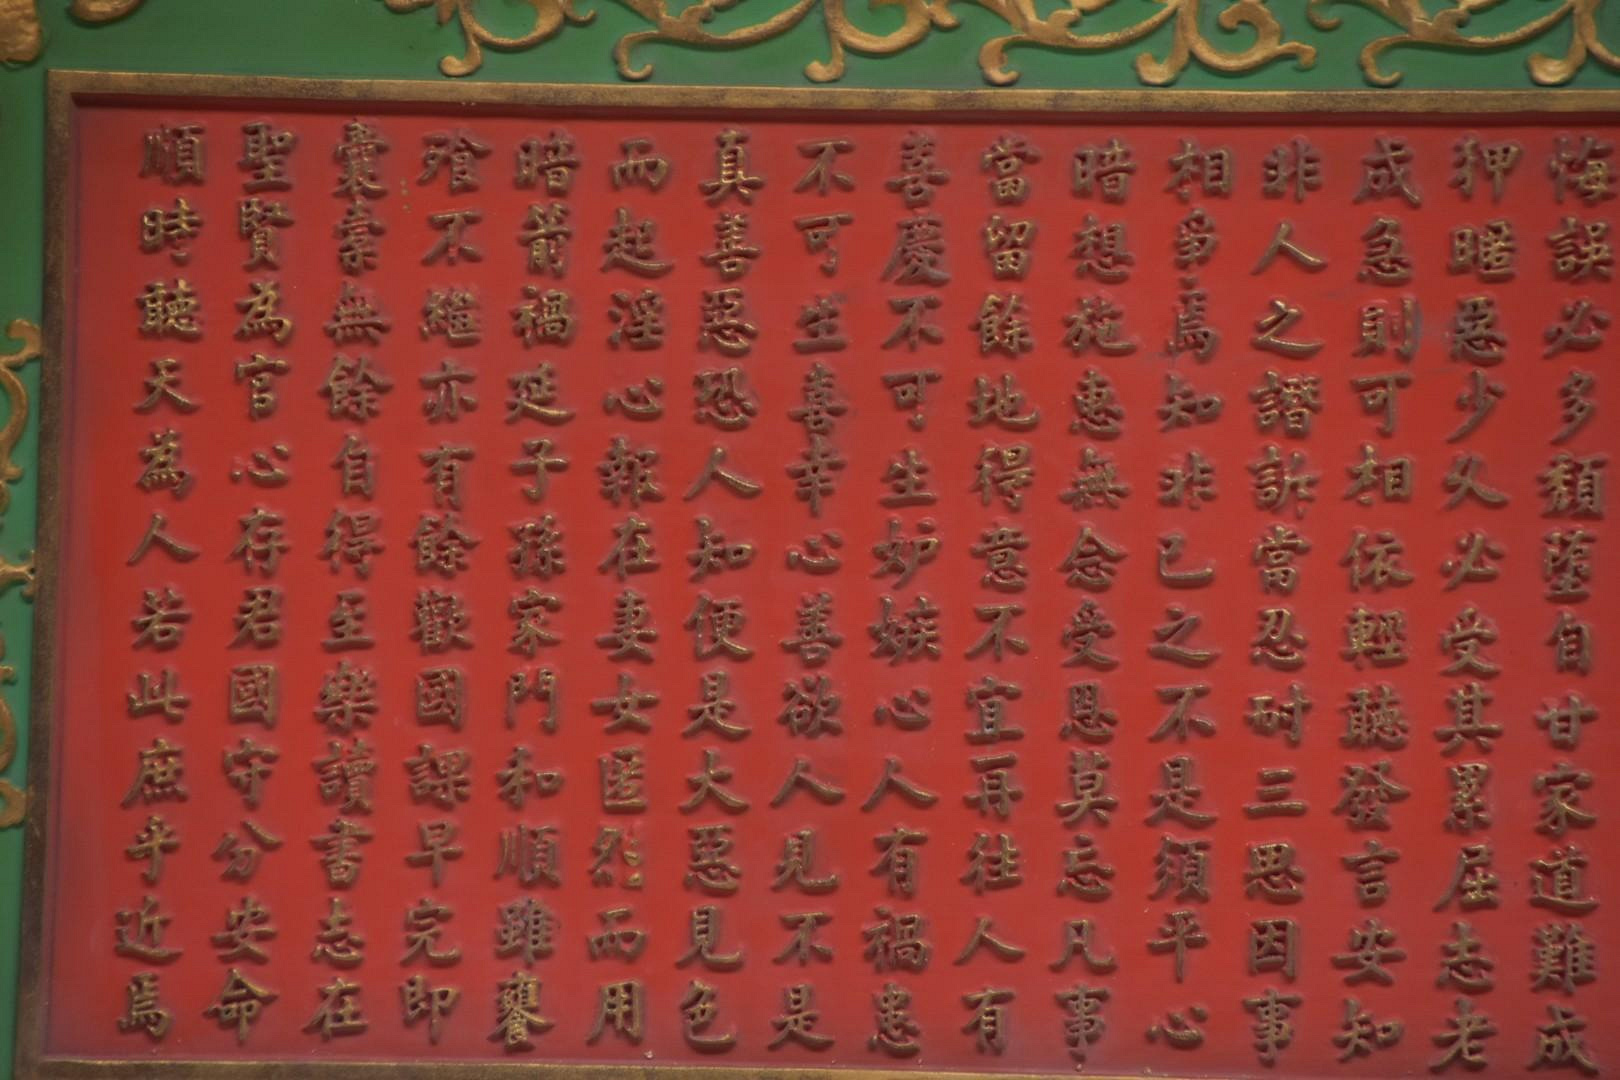 悔誤必多頹墮自甘家道難成
狎暱惡少久必受其累屈志老
成急則可相依輕聽發言安知
非人之譖訴當忍耐三思因事
相爭焉知非已之不是須平心
暗想施惠無念受恩莫忘凡事
當留餘地得意不宜再往人有
喜慶不可生妒嫉心人有禍患
不可生喜幸心善欲人見不是
真善惡恐人知便是大惡見色
而起淫心報在妻女匿怨而用
暗箭禍延子孫家門和順雖饔
飧不繼亦有餘歡國課早完即
囊橐無餘自得至樂讀書志在
聖賢為官心存君國守分安命
順時聽天為人若此庶乎近焉